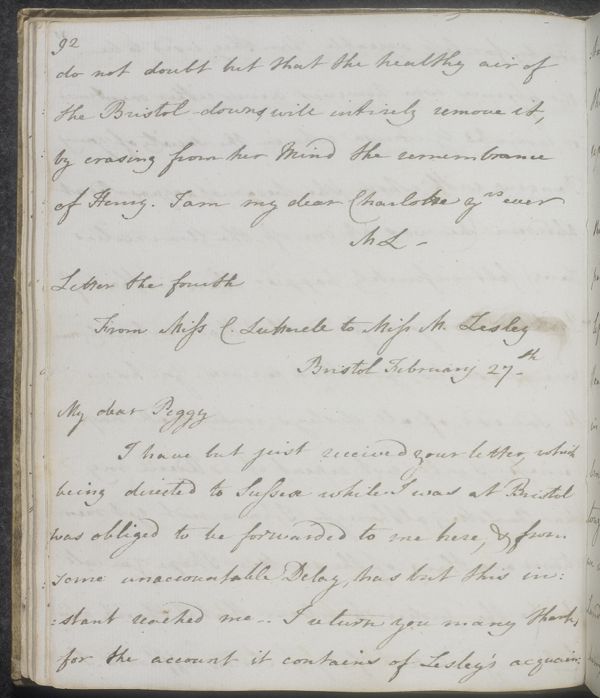 92
do not doubt but that the healthy air of
the Bristol downs will intirely remove it,
by erasing from her Mind the remembrance
of Henry. I am my dear Charlotte yrs ever
M L -
Letter the fourth
From Miss C. Lutterell to Miss M. Lesley
Bristol February 27th
My dear Peggy
I have but just received your letter, which
being directed to Sussex while I was at Bristol
was obliged to be forwarded to me here, & from
some unaccountable Delay, has but this in:
:stant reached me -. I return you many thanks
for the account it contains of Lesley's acquain: